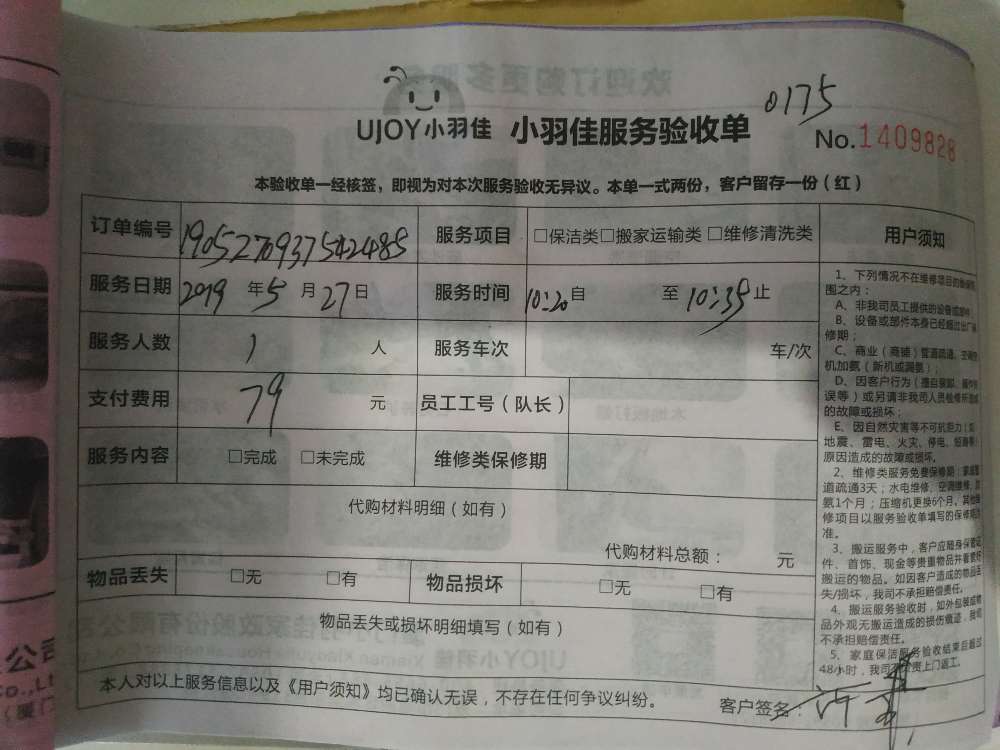 0175
UJOY小羽佳 小羽佳服务验收单 No.1409828
本验收单一经核签，即视为对本次服务验收无异议。本单一式两份，客户留存一份（红）
订单编号 190527093754242485 服务项目 □保洁类□搬家运输类 □维修清洗类
服务日期 2019 年 5 月 27 日 服务时间 10:20 自 至 10:35 止
服务人数 1 人 服务车次 车/次
支付费用 79 元 员工工号（队长）
服务内容 □完成 □未完成 维修类保修期
代购材料明细（如有）
代购材料总额： 元
物品丢失 □无 □有 物品损坏 □无 □有
物品丢失或损坏明细填写（如有）
本人对以上服务信息以及《用户须知》均已确认无误，不存在任何争议纠纷。
客户签名： 许
用户须知
1、下列情况不在维修项目的
围之内：
A、非我司员工提供的设备或部件；
B、设备或部件本身已经超过出厂
修期；
C、商业（商铺）管道疏通、空调
机加氨（新机或漏氨）；
D、因客户行为（擅自装卸、操作
误等）或另请非我司人员检修所造成
的故障或损坏；
E、因自然灾害等不可抗力（如
地震、雷电、火灾、停电、短路等）
原因造成的故障或损坏。
2、维修类服务免费保修期：家庭
道疏通3天；水电维修、空调维修、加
氨1个月；压缩机更换6个月。其他维
修项目以服务验收单填写的保修期为
准。
3、搬运服务中，客户应随身保管证
件、首饰、现金等贵重物品并看管好
搬运的物品。如因客户造成的物品丢
失/损坏，我司不承担赔偿责任。
4、搬运服务验收时，如外包装或物
品外观无搬运造成的损伤痕迹，我司
不承担赔偿责任。
5、家庭保洁服务验收结束后超过
48小时，我司不负责上门返工。
公司
Co.,Lt
（厦门